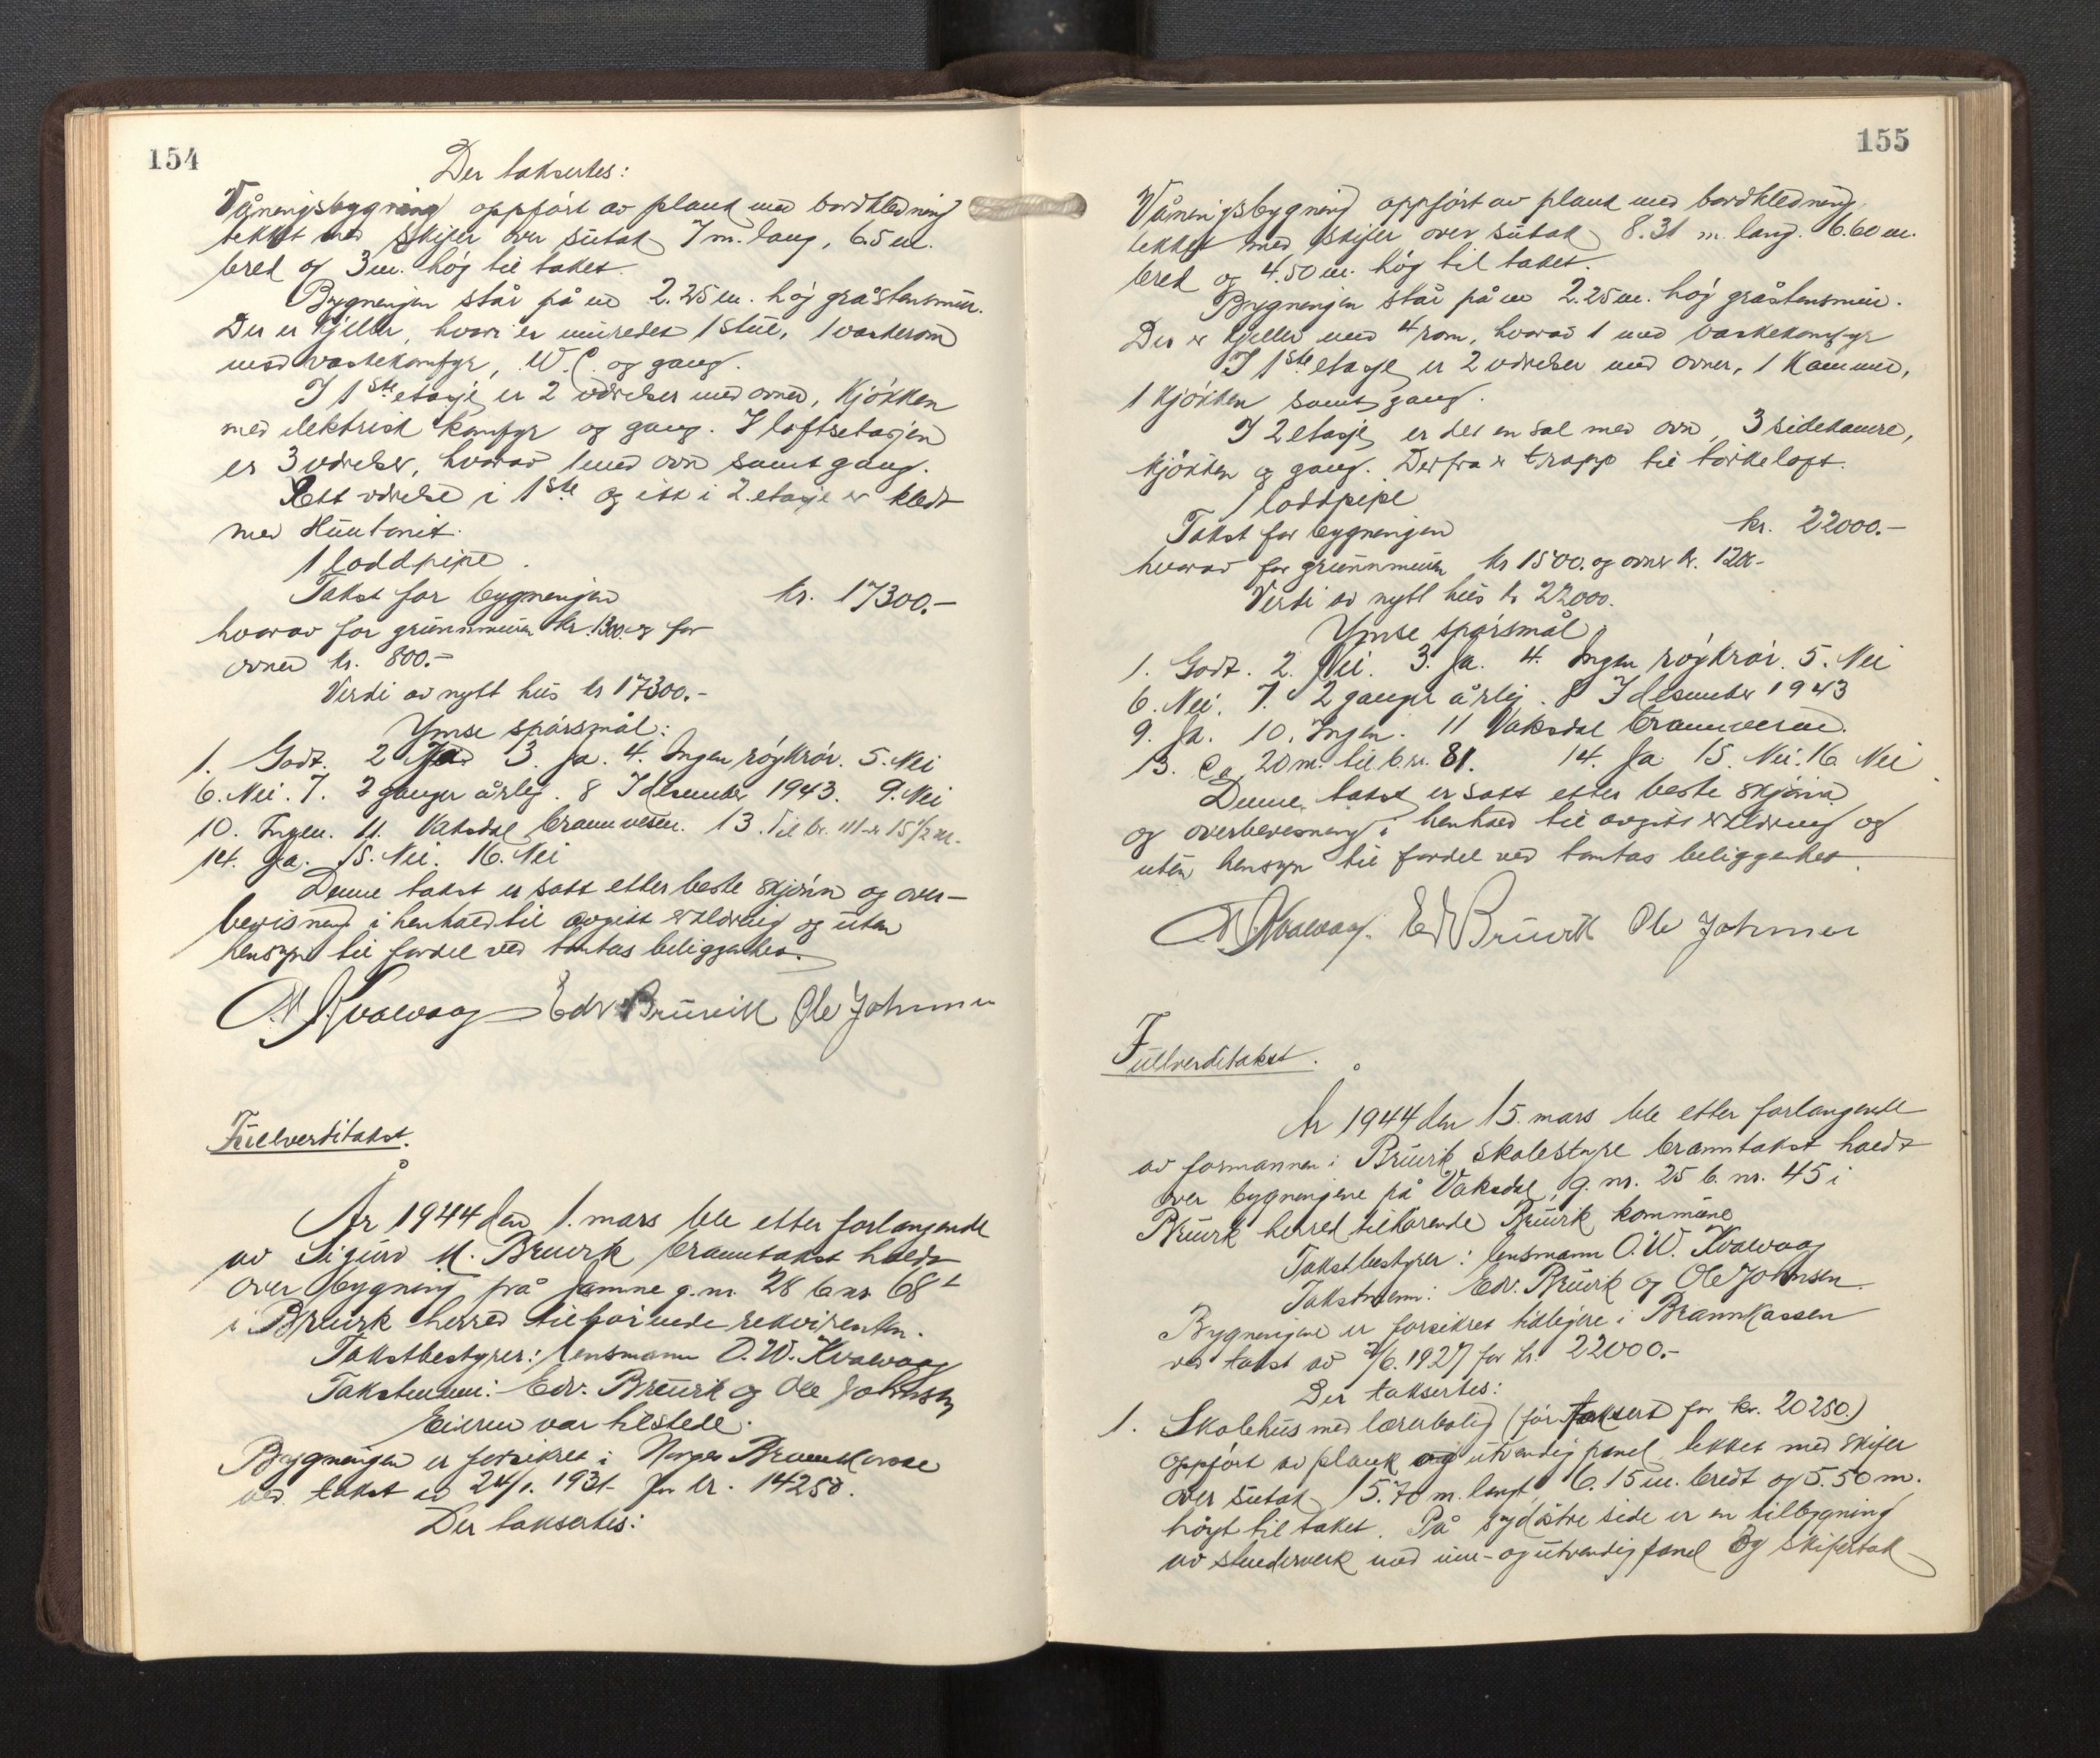 154
Der taksertes:
Våningsbygning oppført av plank med bordkledning
tekket med skifer over sutak 7 m. lang, 6.5 m.
bred og 3 m. høg til taket.
Bygningen står på en 2.25 m. høg gråstensmur.
Der er kjeller, hvori er innredet 1 stue, 1 vaskerom
med vaskekomfyr, W.C. og gang.
I 1ste etasje er 2 værelser med ovner, kjøkken
med elektrisk komfyr og gang. I loftsetasjen
er 3 værelser, hvorav 1 med ovn samt gang.
Ett værelse i 1ste og ett i 2. etasje er kledt
med Huntonit.
1 loddpipe.
Takst for bygningen kr. 17300.-
hvorav for grunnmuren kr. 1300 og for
ovner kr. 800.-
Verdi av nytt hus kr 17300.-
Ymse spørsmål:
1. Godt. 2 Ja 3. Ja. 4. Ingen røykrør. 5. Nei
6. Nei. 7. 2 ganger årleg. 8 I desember 1943. 9. Nei
10. Ingen. 11. Vaksdal brannvesen. 13. Til br. 15 1/2 m.
14. Ja. 15. Nei. 16. Nei
Denne takst er satt etter beste skjønn og over-
bevisning i henhold til avgitt erklæring og uten
hensyn til fordel ved tomtas beliggenhet.
O.W. Kvalvaag Edv Bruvik Ole Johnsen
Fullverditakst.
År 1944 den 1. mars ble etter forlangende
av Sigurd M. Bruvik branntakst holdt
over bygning på Jamne g.nr. 28 b.nr 68
i Bruvik herred tilhørende rekvirenten.
Takstbestyrer: lensmann O.W. Kvalvaag
Takstmenn: Edv. Bruvik og Ole Johnsen
Eieren var tilstede.
Bygningen er forsikret i Norges Brannkasse
ved takst av 24/1. 1931 for kr. 14250.
Der taksertes:
155
Våningsbygning oppført av plank med bordkledning,
tekket med skifer over sutak 8.31 m. lang. 6.60 m.
bred og 4.50 m. høg til taket.
Bygningen står på en 2.25 m. høg gråstensmur.
Der er kjeller med 4 rom, hvorav 1 med vaskekomfyr
I 1ste etasje er 2 værelser med ovner, 1 kammer,
1 kjøkken samt gang.
I 2 etasje er det en sal med ovn, 3 sidekamre,
kjøkken og gang. Derfra er trapp til tørkeloft.
1 loddpipe
Takst for bygningen kr. 22000.-
hvorav for grunnmuren kr 1500. og ovner kr. 1200.-
Verdi av nytt hus kr 22000.
Ymse spørsmål
1. Godt. 2. Nei. 3. Ja. 4. Ingen røykrør. 5. Nei
6. Nei. 7. 2 ganger årleg. 8 I desember 1943
9. Ja. 10. Ingen. 11 Vaksdal brannvesen.
13. Ca 20 m. til b.nr. 81. 14. Ja 15. Nei. 16 Nei
Denne takst er satt etter beste skjønn
og overbevisning i henhold til avgitt erklæring og
uten hensyn til fordel ved tomtas beliggenhet.
O.W. Kvalvaag. Edv Bruvik Ole Johnsen
Fullverditakst.
År 1944 den 15. mars ble etter forlangende
av formannen i Bruvik skolestyre branntakst holdt
over bygningene på Vaksdal, g.nr. 25 b.nr. 45 i
Bruvik herred tilhørende Bruvik kommune
Takstbestyrer: lensmann O.W. Kvalvaag
Takstmenn: Edv. Bruvik og Ole Johnsen.
Bygningene er forsikret tidligere i Brannkassen
ved takst av /6. 1927 for kr. 22000.-
Der taksertes:
1. Skolehus med lærerbolig (før taksert for kr. 20250.)
oppført av plank og utvendig panel tekket med skifer
over sutak 15.70 m. langt 6.15 m. bredt og 5.50 m.
høgt til taket. På sydøstre side er en tilbygning
av stenderverk med inn- og utvendig panel og skifertak